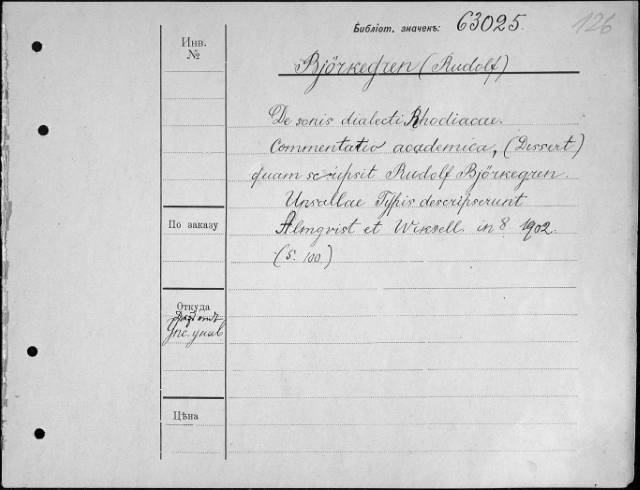 Библіот. значекъ: 63025.
126
Инв.
№
Björkegren (Rudolf)
De sonis dialecti Rhodiacae.
Commentatio academica, (Dissert)
quam scripsit Rudolf Björkegren.
Unsallae Typis descripserunt
По заказу
Almqvist et Wiksell. in 8. 1902.
(S. 100)
Откуда
Упс. унив
Цѣна